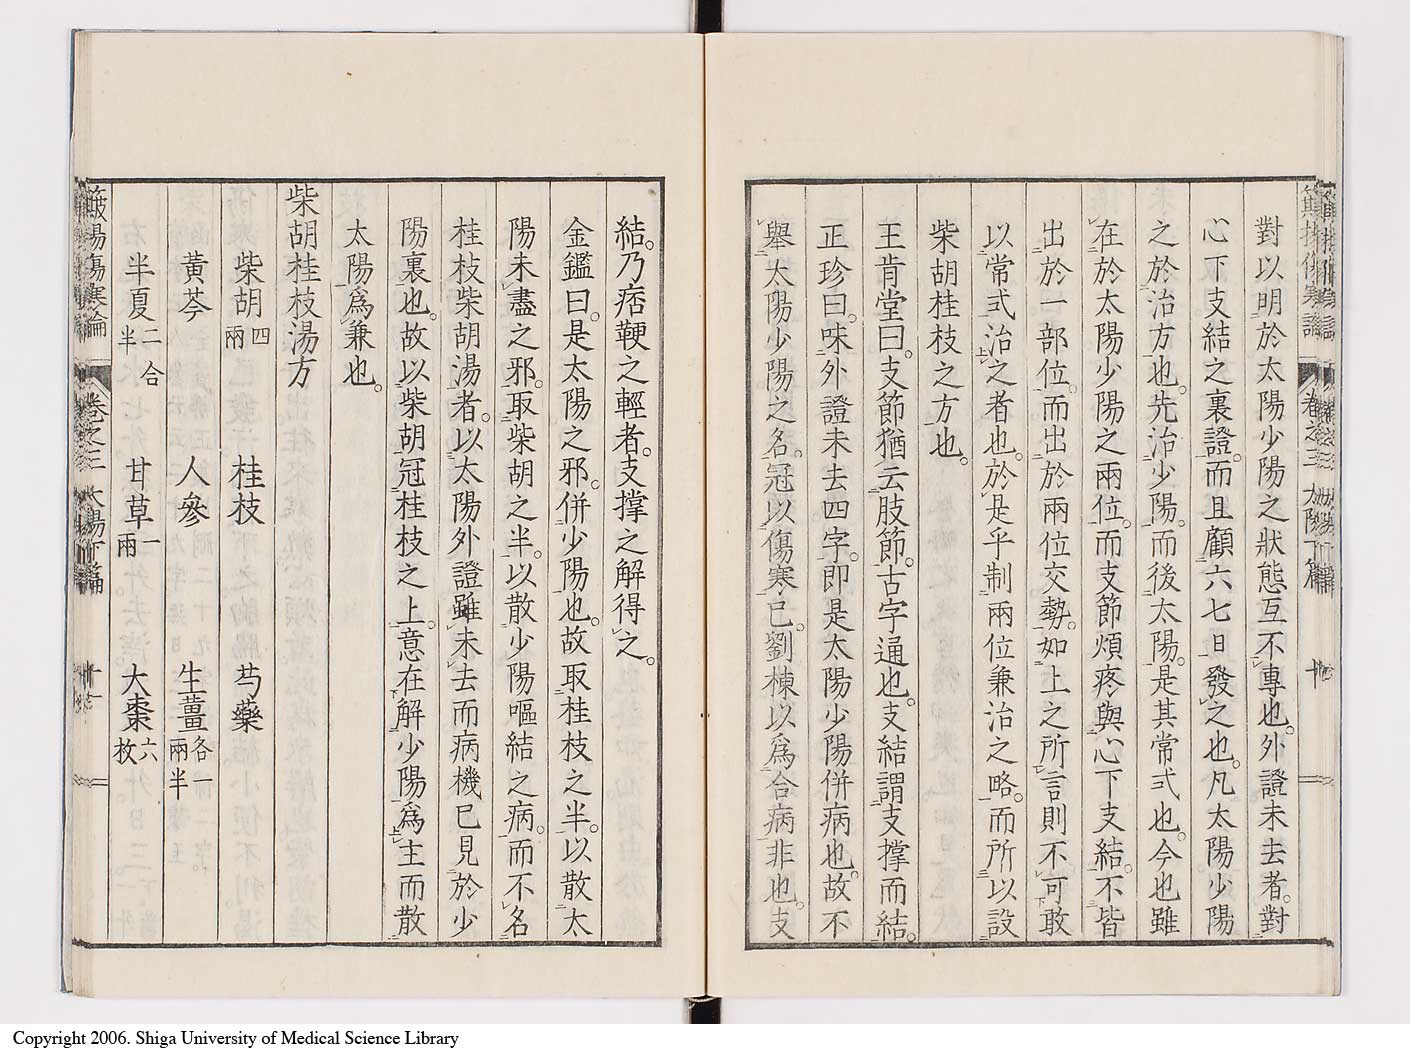 對以明於太陽少陽之狀態互不專也。外證未去者。對
心下支結之裏證。而且顧六七日發之也。凡太陽少陽
之於治方也。先治少陽。而後太陽。是其常式也。今也雖
在於太陽少陽之兩位。而支節煩疼與心下支結。不皆
出於一部位。而出於兩位交勢。如上之所言則不可敢
以常式治之者也。於是乎制兩位兼治之略。而所以設
柴胡桂枝之方也。
王肯堂曰。支節猶云肢節。古字通也。支結謂支撑而結。
正珍曰。味外證未去四字。即是太陽少陽併病也。故不
舉太陽少陽之名。冠以傷寒已。劉棟以爲合病非也。支
結。乃痞鞕之輕者。支撑之解得之。
金鑑曰。是太陽之邪。併少陽也。故取桂枝之半。以散太
陽未盡之邪。取柴胡之半。以散少陽嘔結之病。而不名
桂枝柴胡湯者。以太陽外證雖未去而病機已見於少
陽裏也。故以柴胡冠桂枝之上。意在解少陽爲主而散
太陽爲兼也。
柴胡桂枝湯方
柴胡四兩 桂枝 芍藥
黃芩 人參 生薑各一兩半
半夏二合半 甘草一兩 大棗六枚
傷寒論 卷之三 太陽下篇 十一
卷之三 太陽下篇 十
Copyright 2006. Shiga University of Medical Science Library